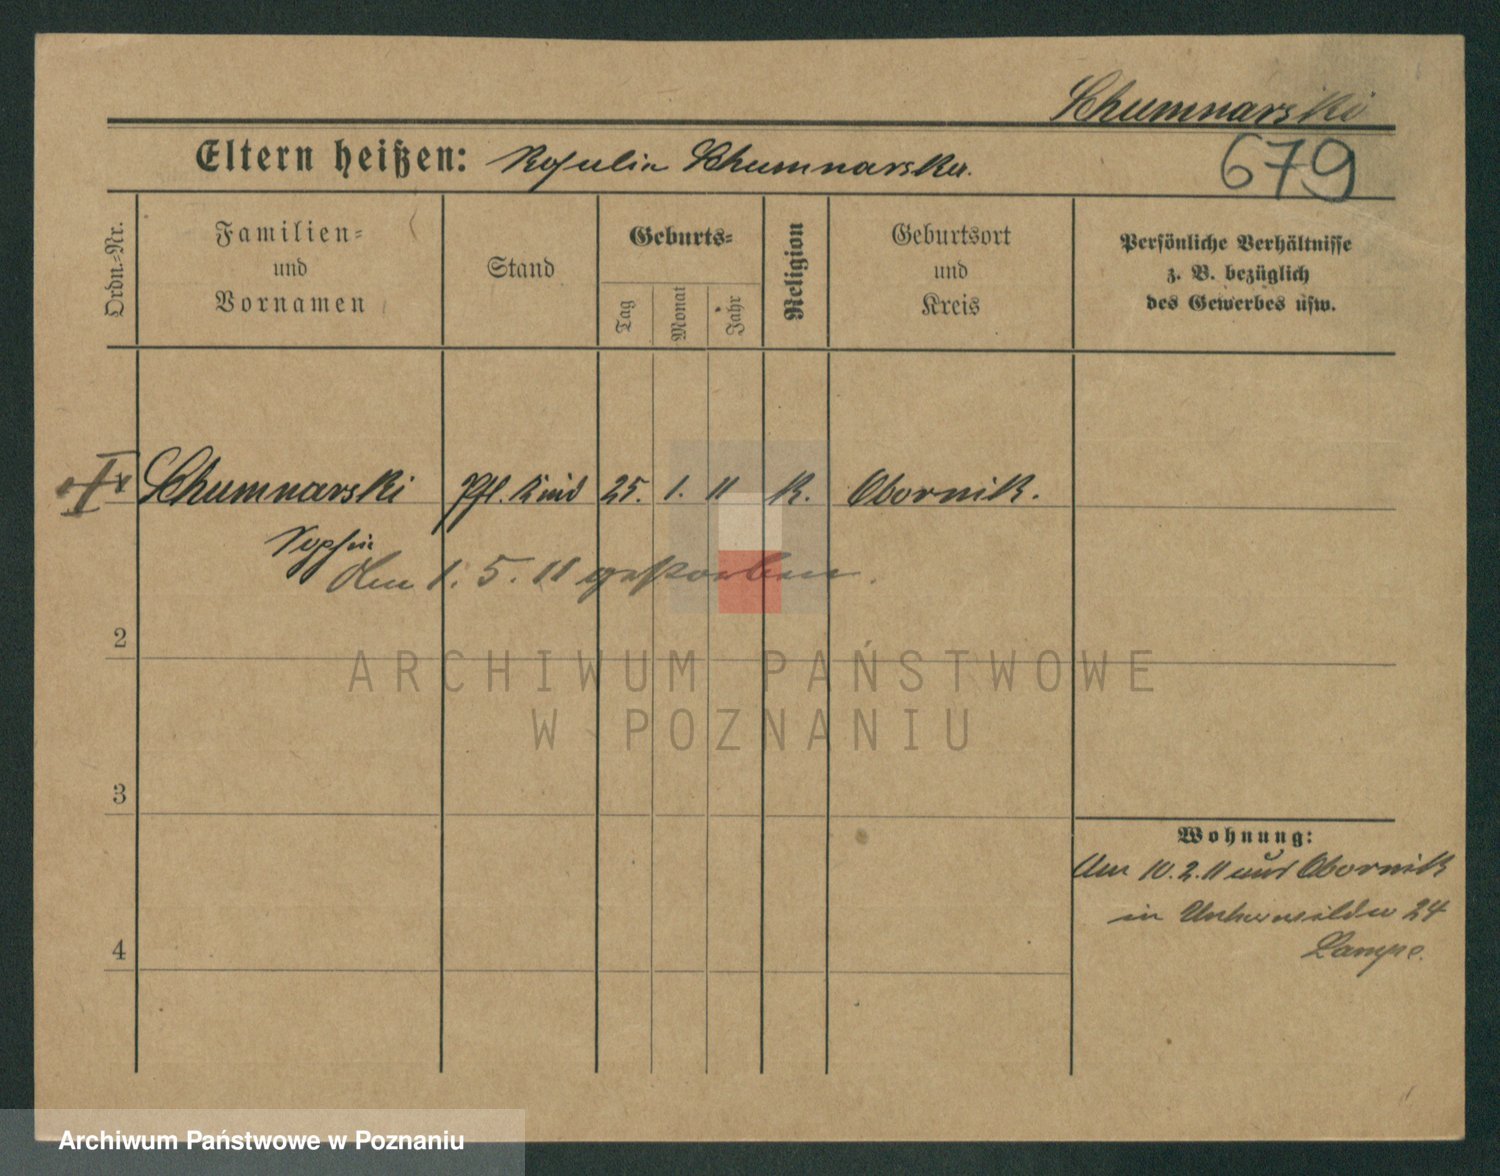 Chumnarski
Eltern heißen: Rosalia Chumnarska.
679
Ordn.-Nr.
Familien-
und
Vornamen
Stand
Geburts-
Tag
Monat
Jahr
Religion
Geburtsort
und
Kreis
Persönliche Verhältnisse
z. B. bezüglich
des Gewerbes usw.
Chumnarski Pfl. Kind 25. 1. 11 K. Obornik.
Sophie
den 1. 5. 11 gestorben.
2
ARCHIWUM PAŃSTWOWE
W POZNANIU
3
Wohnung:
Am 10.2.11 aus Obornik
in Unterwilda 24
Lampe.
4
Archiwum Państwowe w Poznaniu